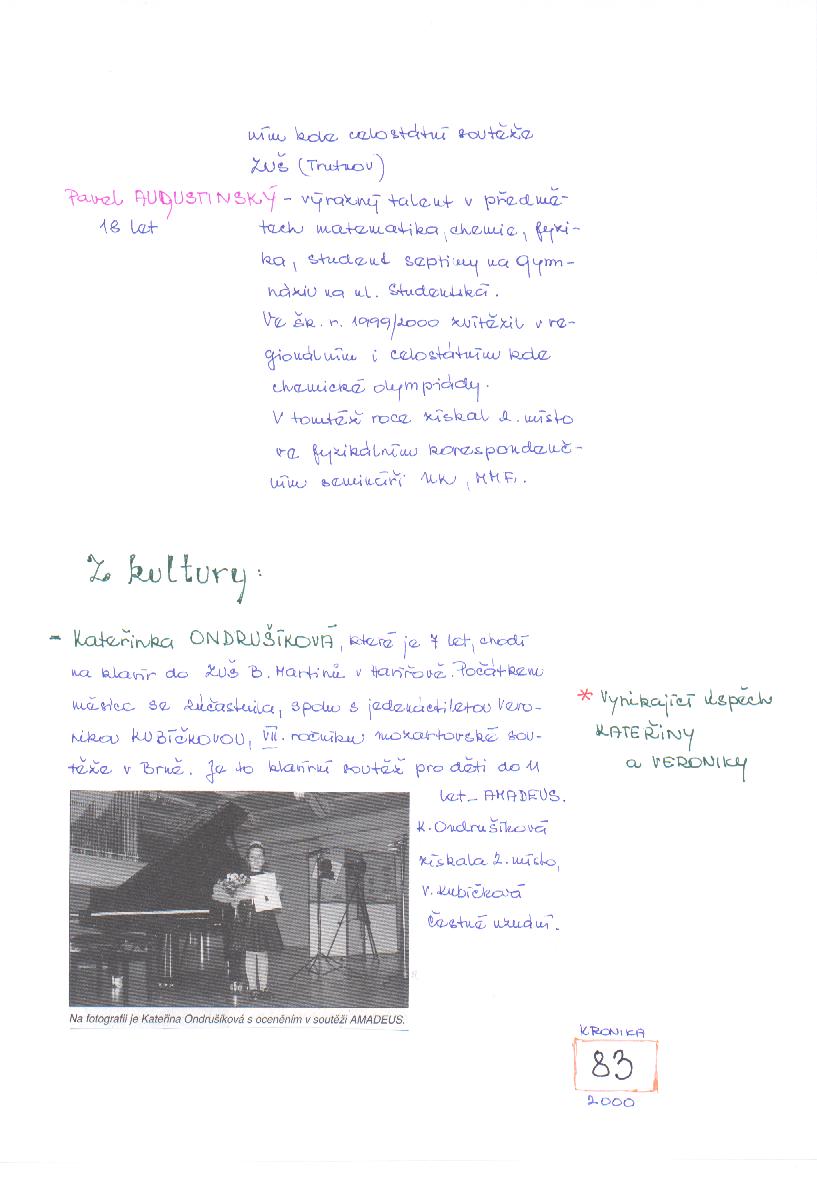 ním kole celostátní soutěže
ZUŠ (Trutnov)
Pavel AUGUSTINSKÝ - výrazný talent v předmě-
18 let
tech matematika, chemie, fyzi-
ka, student septimy na Gym-
náziu na ul. Studentská.
Ve šk. r. 1999/2000 zvítězil v re-
gionálním i celostátním kole
chemické olympiády.
V tomtéž roce získal 2. místo
ve fyzikálním korespondenč-
ním semináři UK, MMF.
Z kultury:
- Kateřinka ONDRUŠÍKOVÁ, které je 7 let, chodí
na klavír do ZUŠ B. Martinů v Havířově. Počátkem
měsíce se zúčastnila, spolu s jedenáctiletou Vero-
nikou KUBÍČKOVOU, VII. ročníku mozartovské sou-
těže v Brně. Je to klavírní soutěž pro děti do 11
let - AMADEUS.
K. Ondrušíková
získala 2. místo,
V. Kubíčková
čestné uznání.
* Vynikající úspěch
KATEŘINY
a VERONIKY
Na fotografii je Kateřina Ondrušíková s oceněním v soutěži AMADEUS.
KRONIKA
83
2000